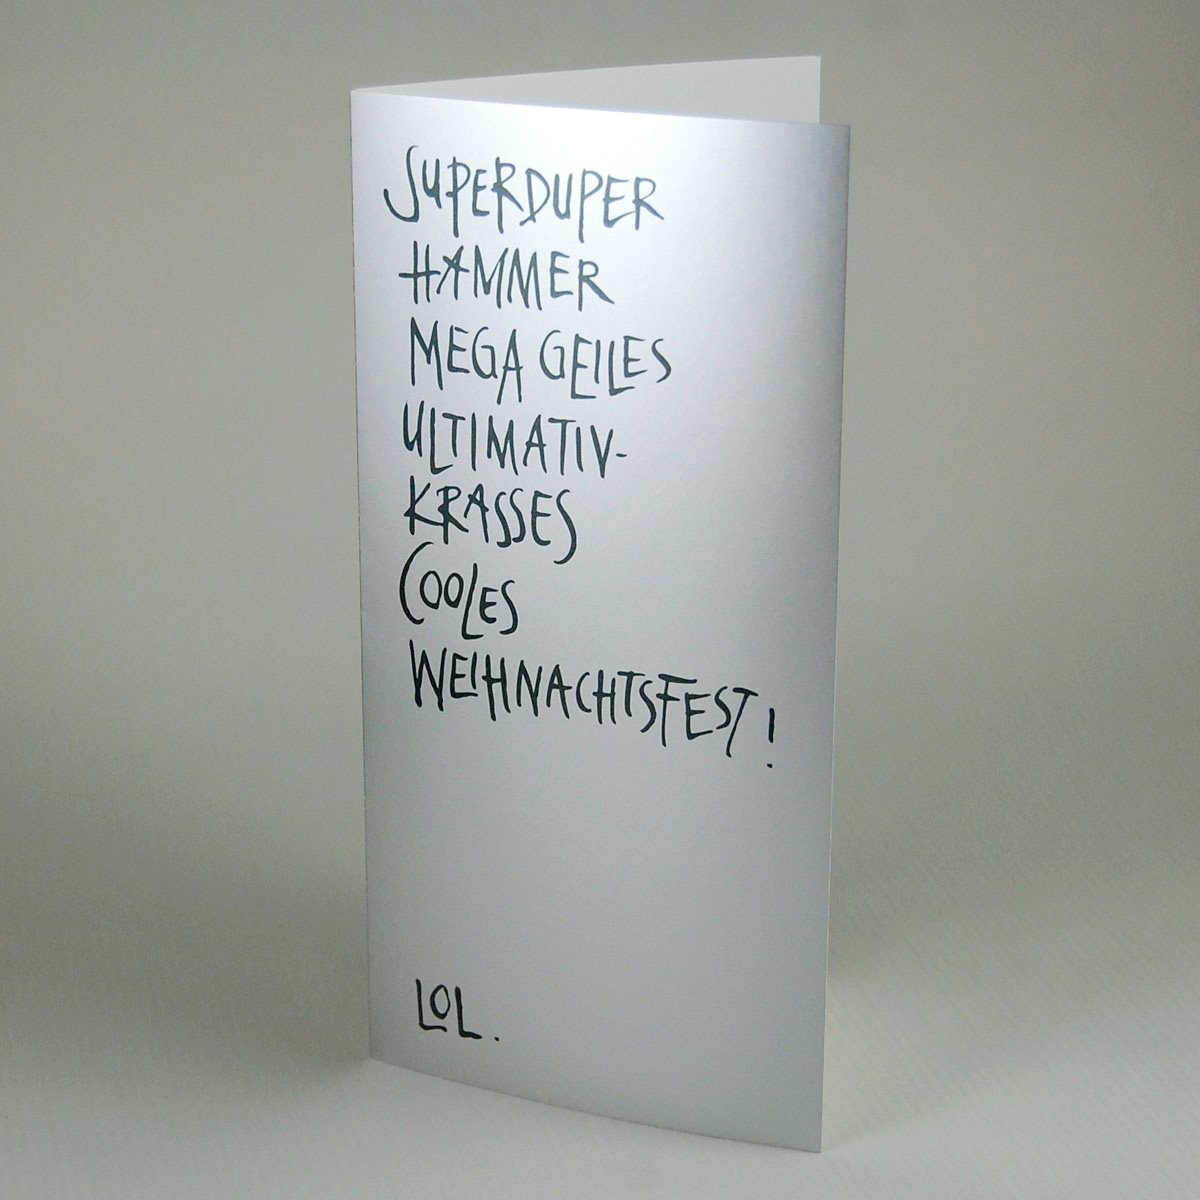 SUPERDUPER
HAMMER
MEGA GEILES
ULTIMATIV-
KRASSES
COOLES
WEIHNACHTSFEST!
LOL.